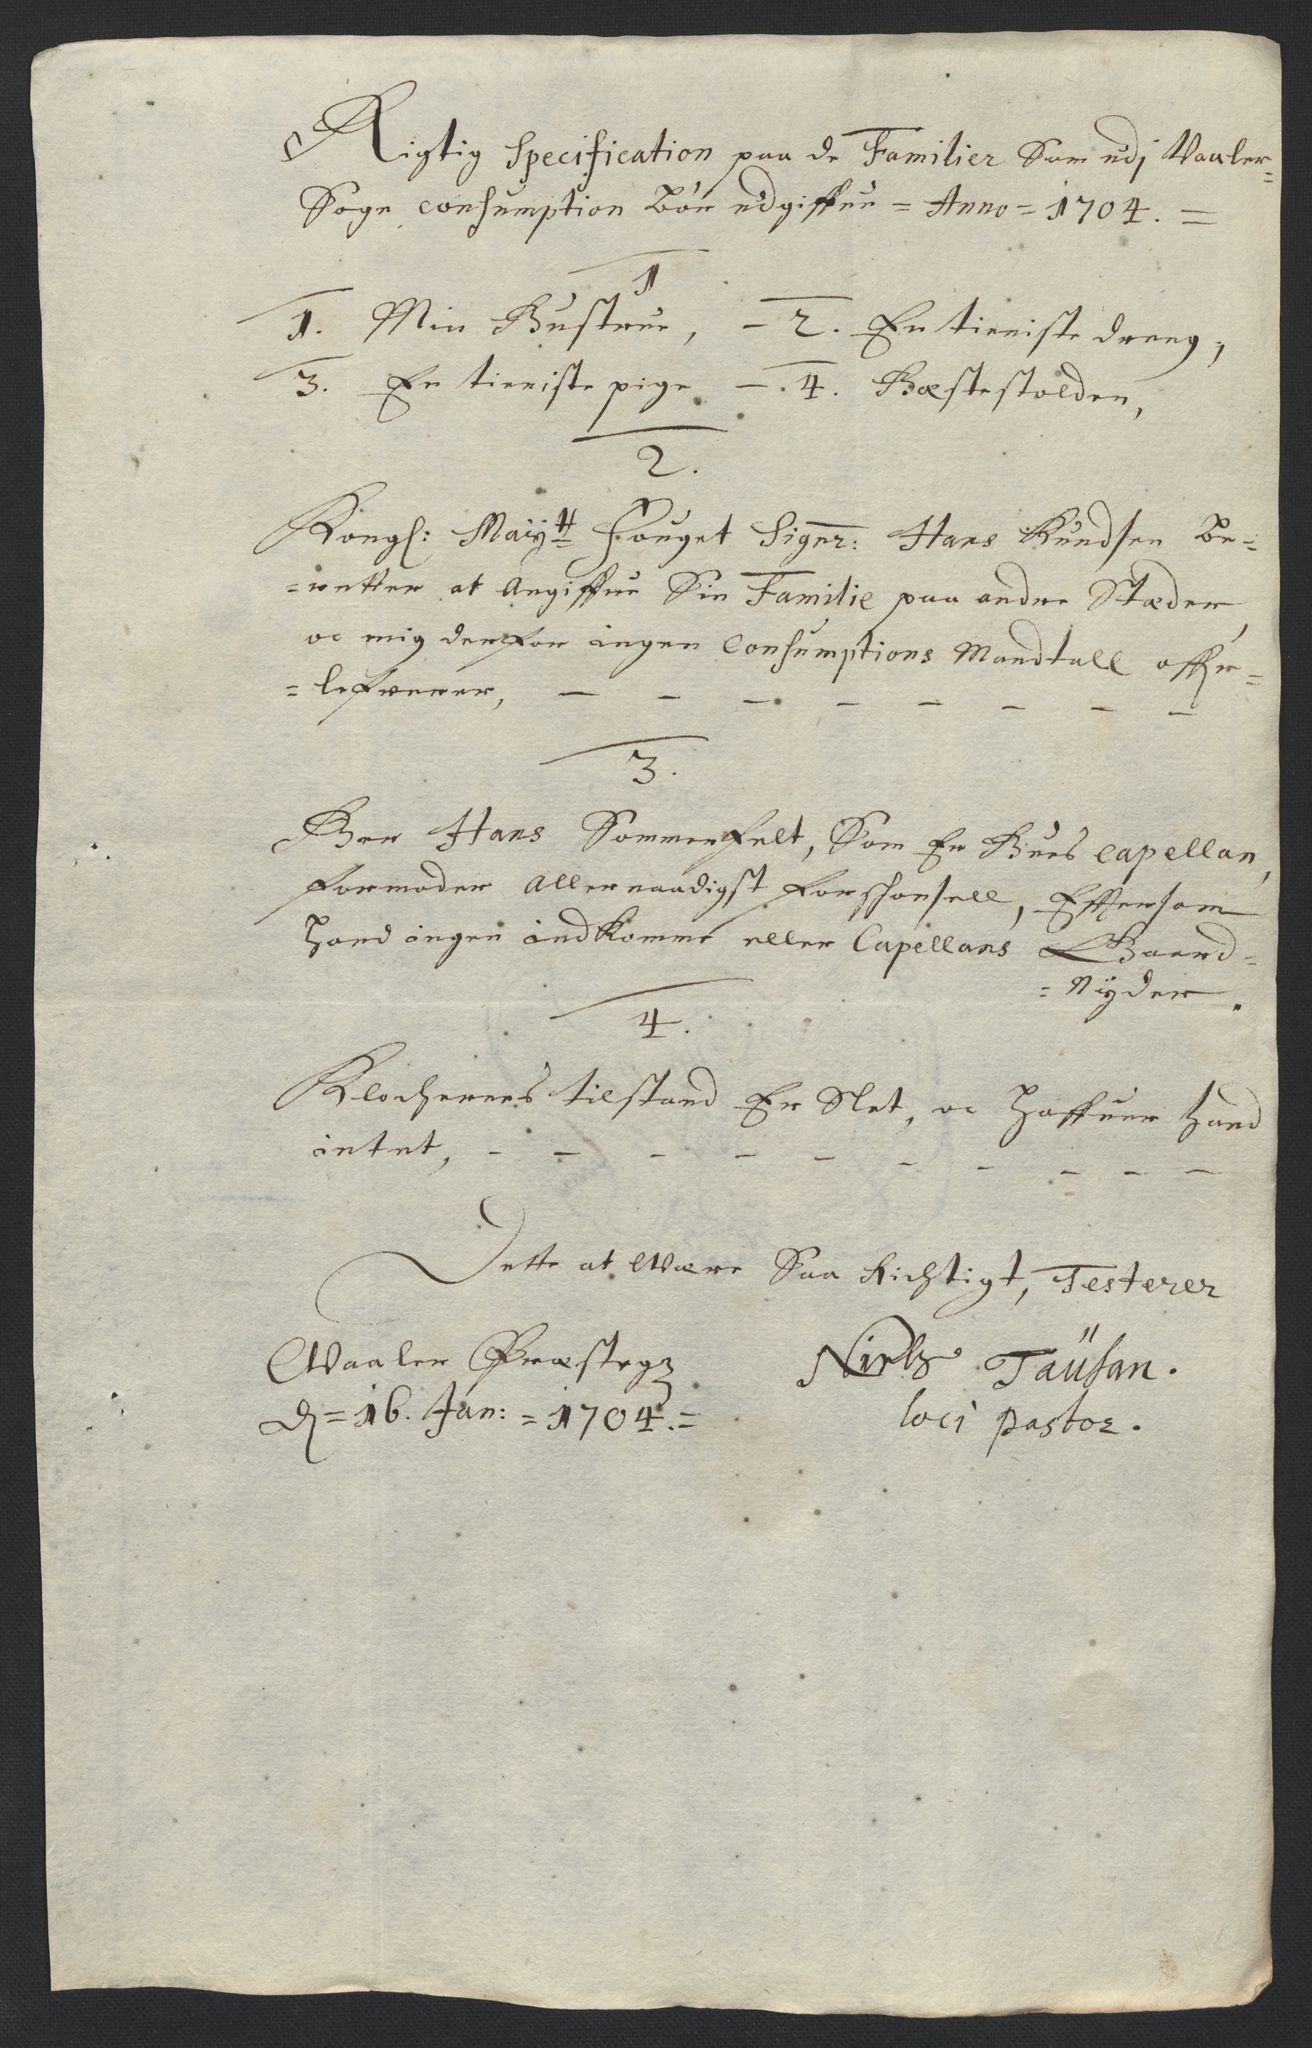 Rigtig Specification paa de Familier Som udj Vaaler=
Sogn consumption bör udgiffue = Anno = 1704. =
1
1. Min Hustrue, - 2. En tieniste dreng,
3. En tieniste pige - . 4. Hæstestolden,
2.
Kongl: Mayttz fouget Signr: Hans Knudsen be=
=retter at Angiffue Sin Familie paa andre Stæder,
oc mig derfor ingen Consumptions Mandtall offr=
=lefverer, - - - - - - - -
3.
Her Hans Sommerfelt, Som Er Huus Capellan,
formoder Allernaadigst forschonsell, Efftersom
hand ingen indkomme eller Capellans Gaard=
=Nÿder.
4.
Klocherens tilstand Er Slet, oc haffuer hand
intet, - - - - - - - - - -
Dette at Være Saa Richtigt, Testerer
Vaaler Præstegr
d = 16. Jan: = 1704. =
Niels Taüsan.
loci pastor.